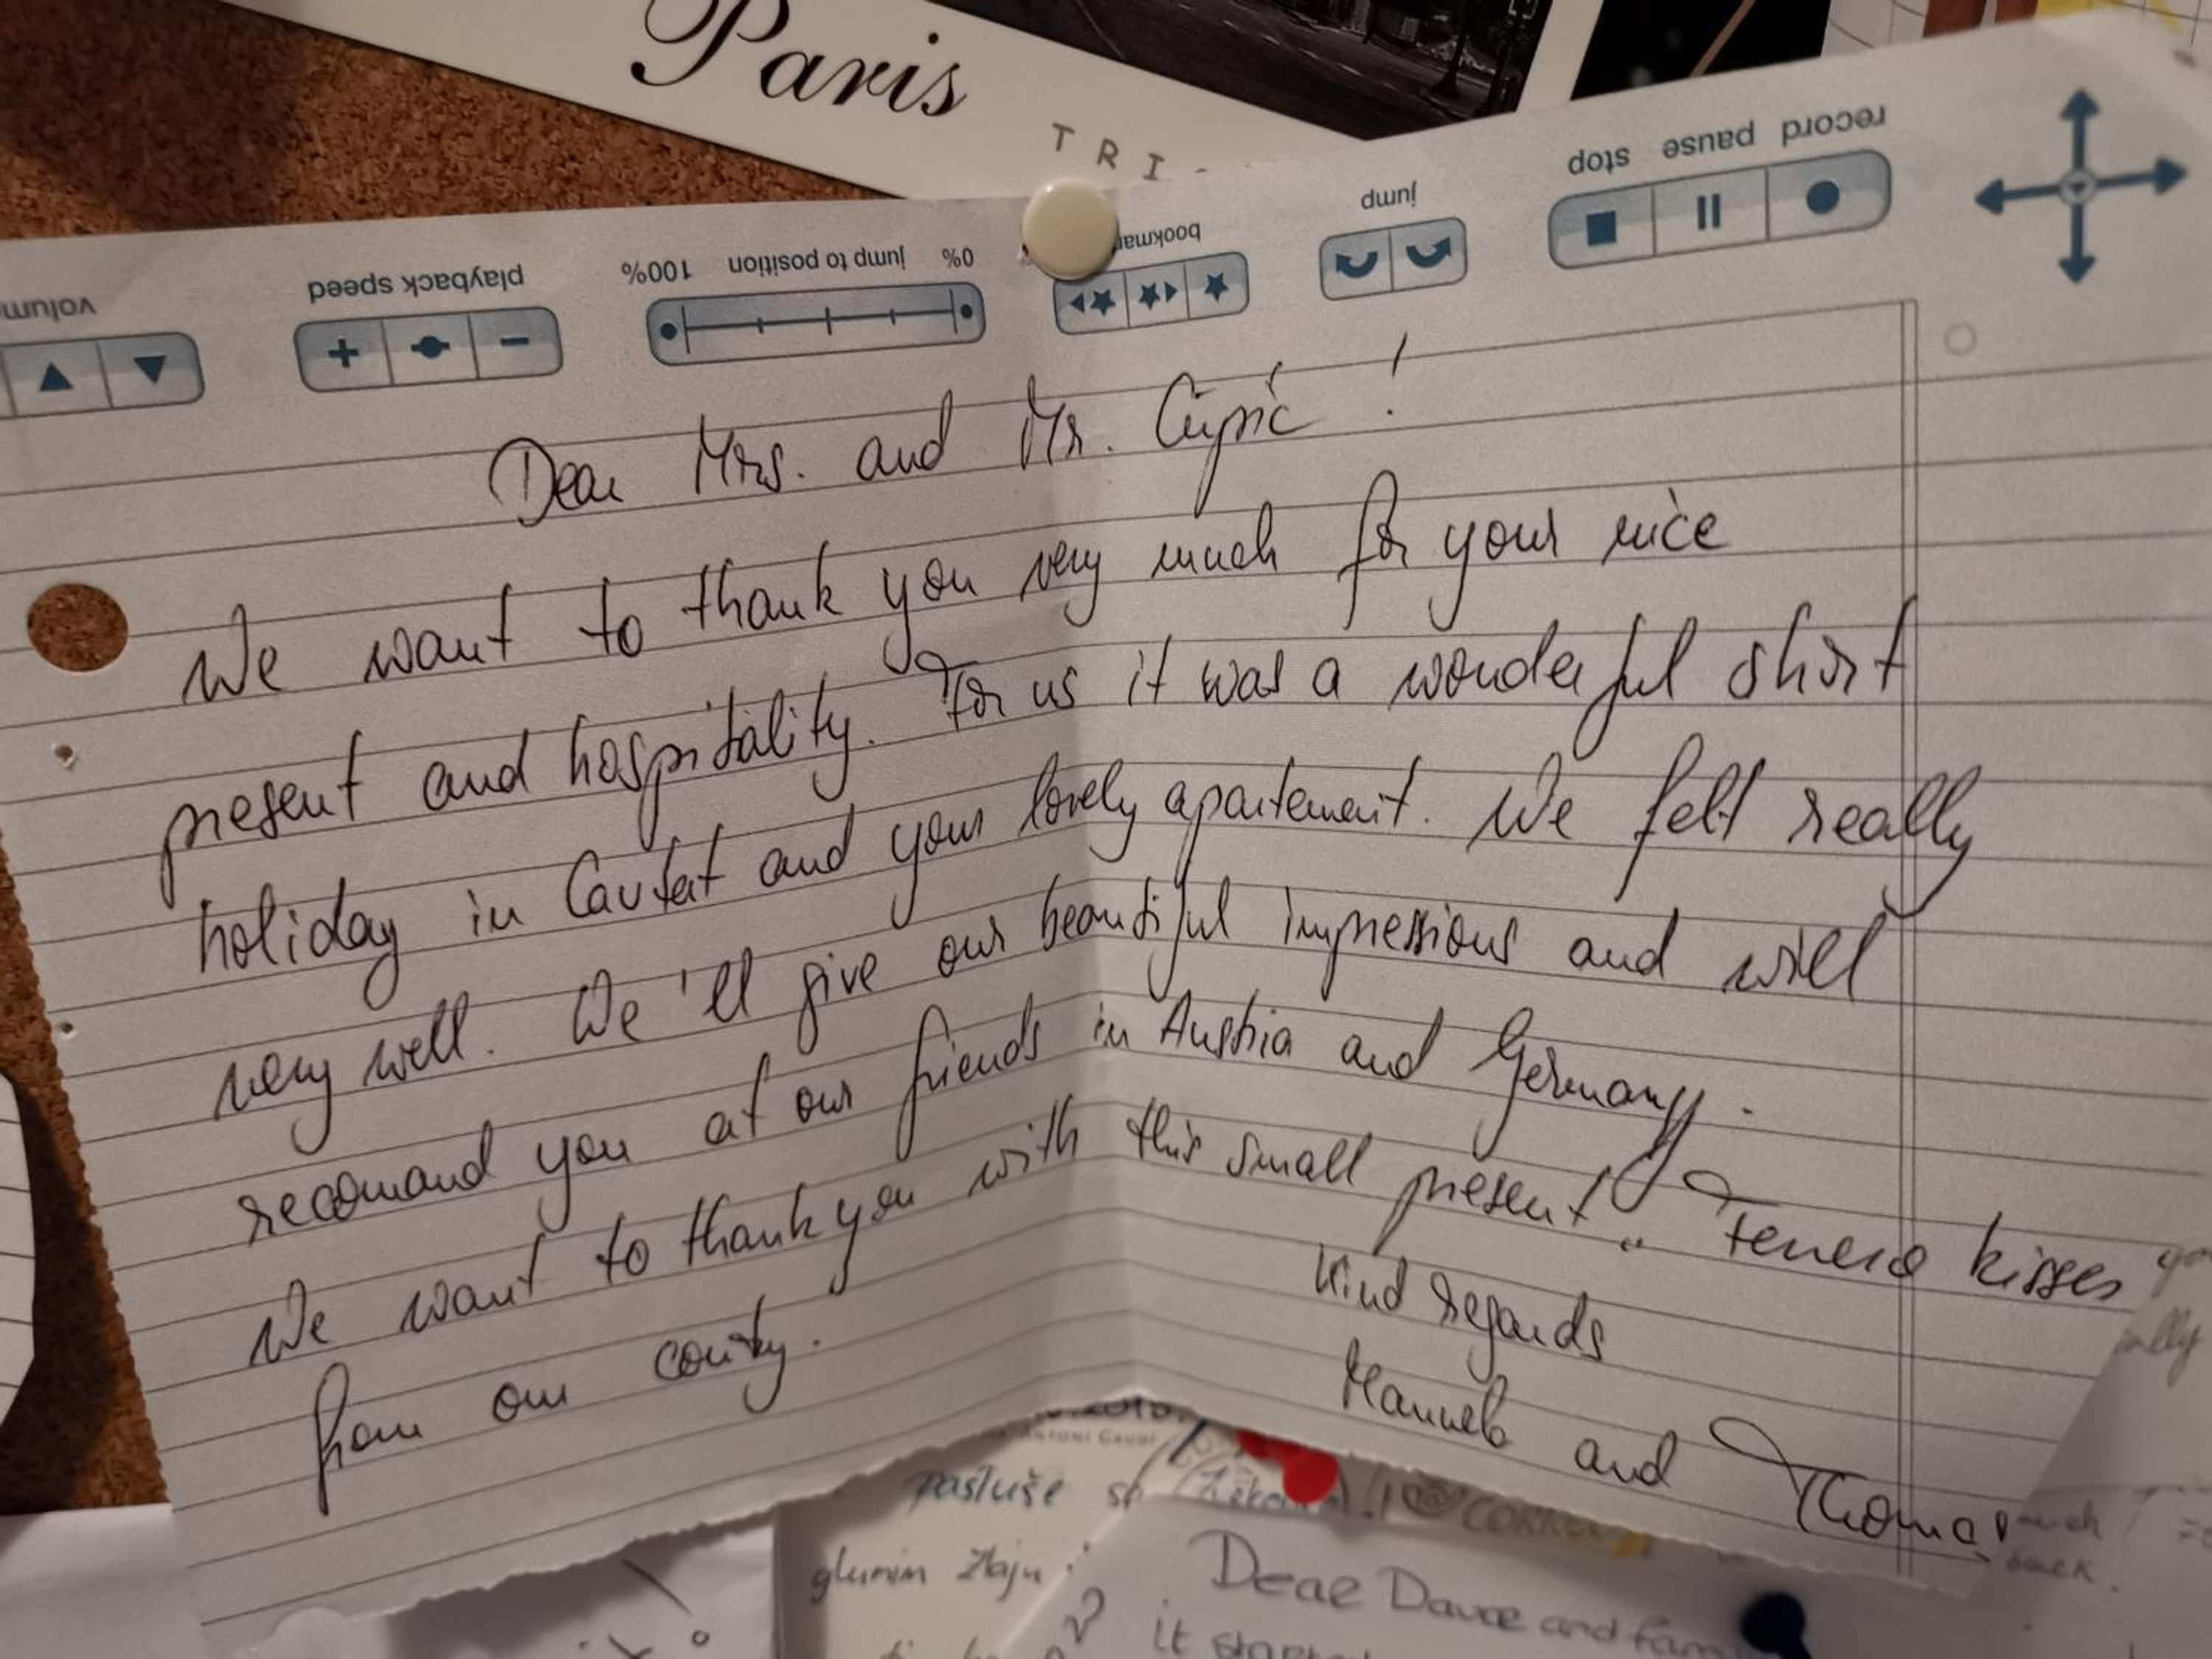 Paris
TRI
record pause stop
jump
bookmar
0% jump to position 100%
playback speed
volum
Dear Mrs. and Mr. Cupić!
We want to thank you very much for your nice
present and hospitality. For us it was a wonderful short
holiday in Cavtat and your lovely apartement. We felt really
very well. We'll give our beautiful impressions and will
recomand you at our friends in Austria and Germany.
We want to thank you with this small present „ Ferrero kisses
from our contry.
Kind regards
Manuela and Thomas
ANTONI GAUDI
pastuše
glumim
Dear Davor and fam
it started
ally
much
back.